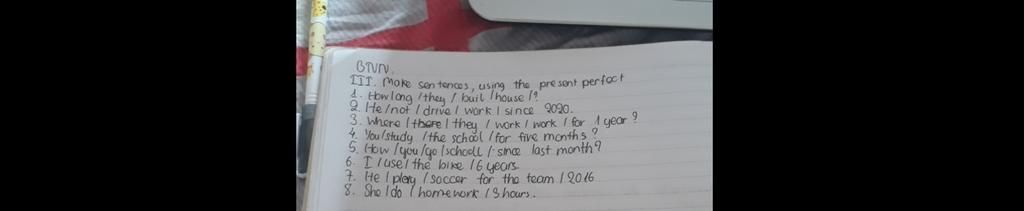 BTVN.
III. Make sentences, using the present perfect
1. How long / they / buil / house / ?
2. He / not / drive / work / since 2020.
3. Where / there / they / work / work / for 1 year ?
4. You / study / the school / for five months ?
5. How / you / go / schooll / since last month ?
6. I / use / the bike / 6 years.
7. He / play / soccer for the team / 2016
8. She / do / homework / 3 hours.